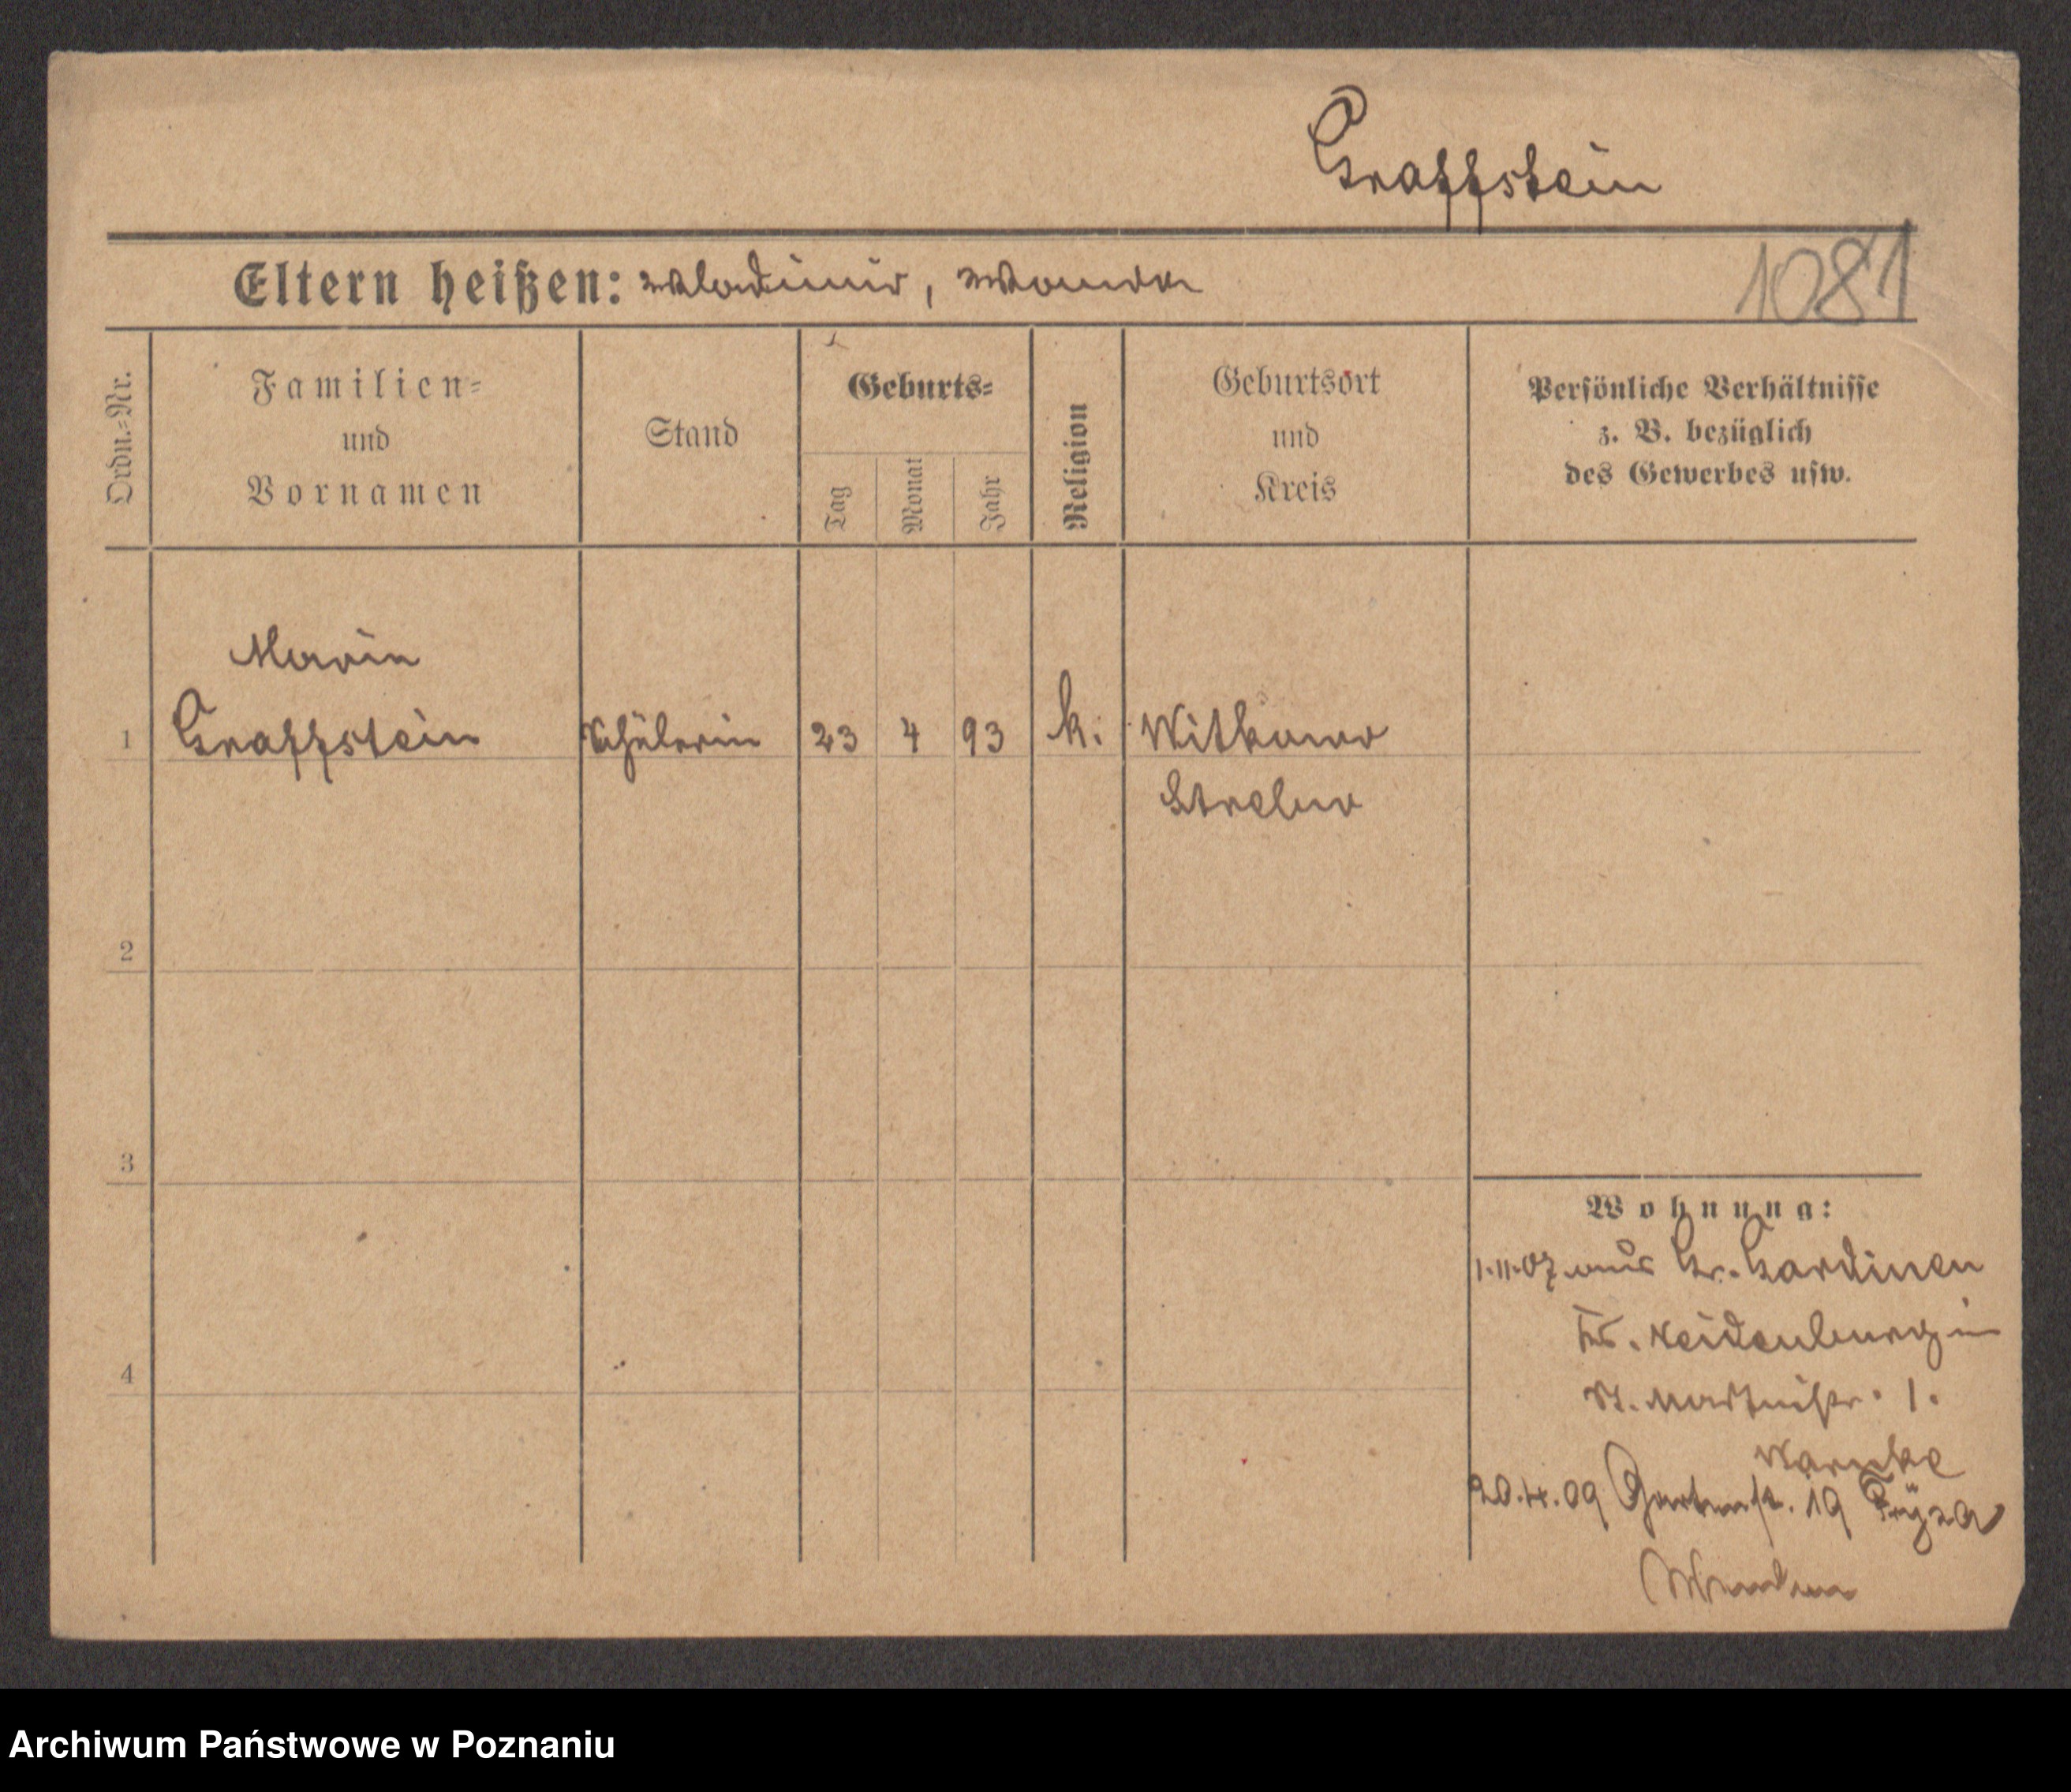 Graffstein
Eltern heißen: Wladimir, Wanda
1081
Ordn.=Nr.
Familien=
und
Vornamen
Stand
Geburts=
Tag
Monat
Jahr
Religion
Geburtsort
und
Kreis
Persönliche Verhältnisse
z. B. bezüglich
des Gewerbes usw.
Maria
1 Graffstein Schülerin 23 4 93 k. Witkowo
Strelno
2
3
4
Wohnung:
1.11.07 aus Gr. Gardinen
Kr. Neidenburg in
St. Martinstr. 1.
Warnke
20.4.09 Gartenstr. 19
Archiwum Państwowe w Poznaniu